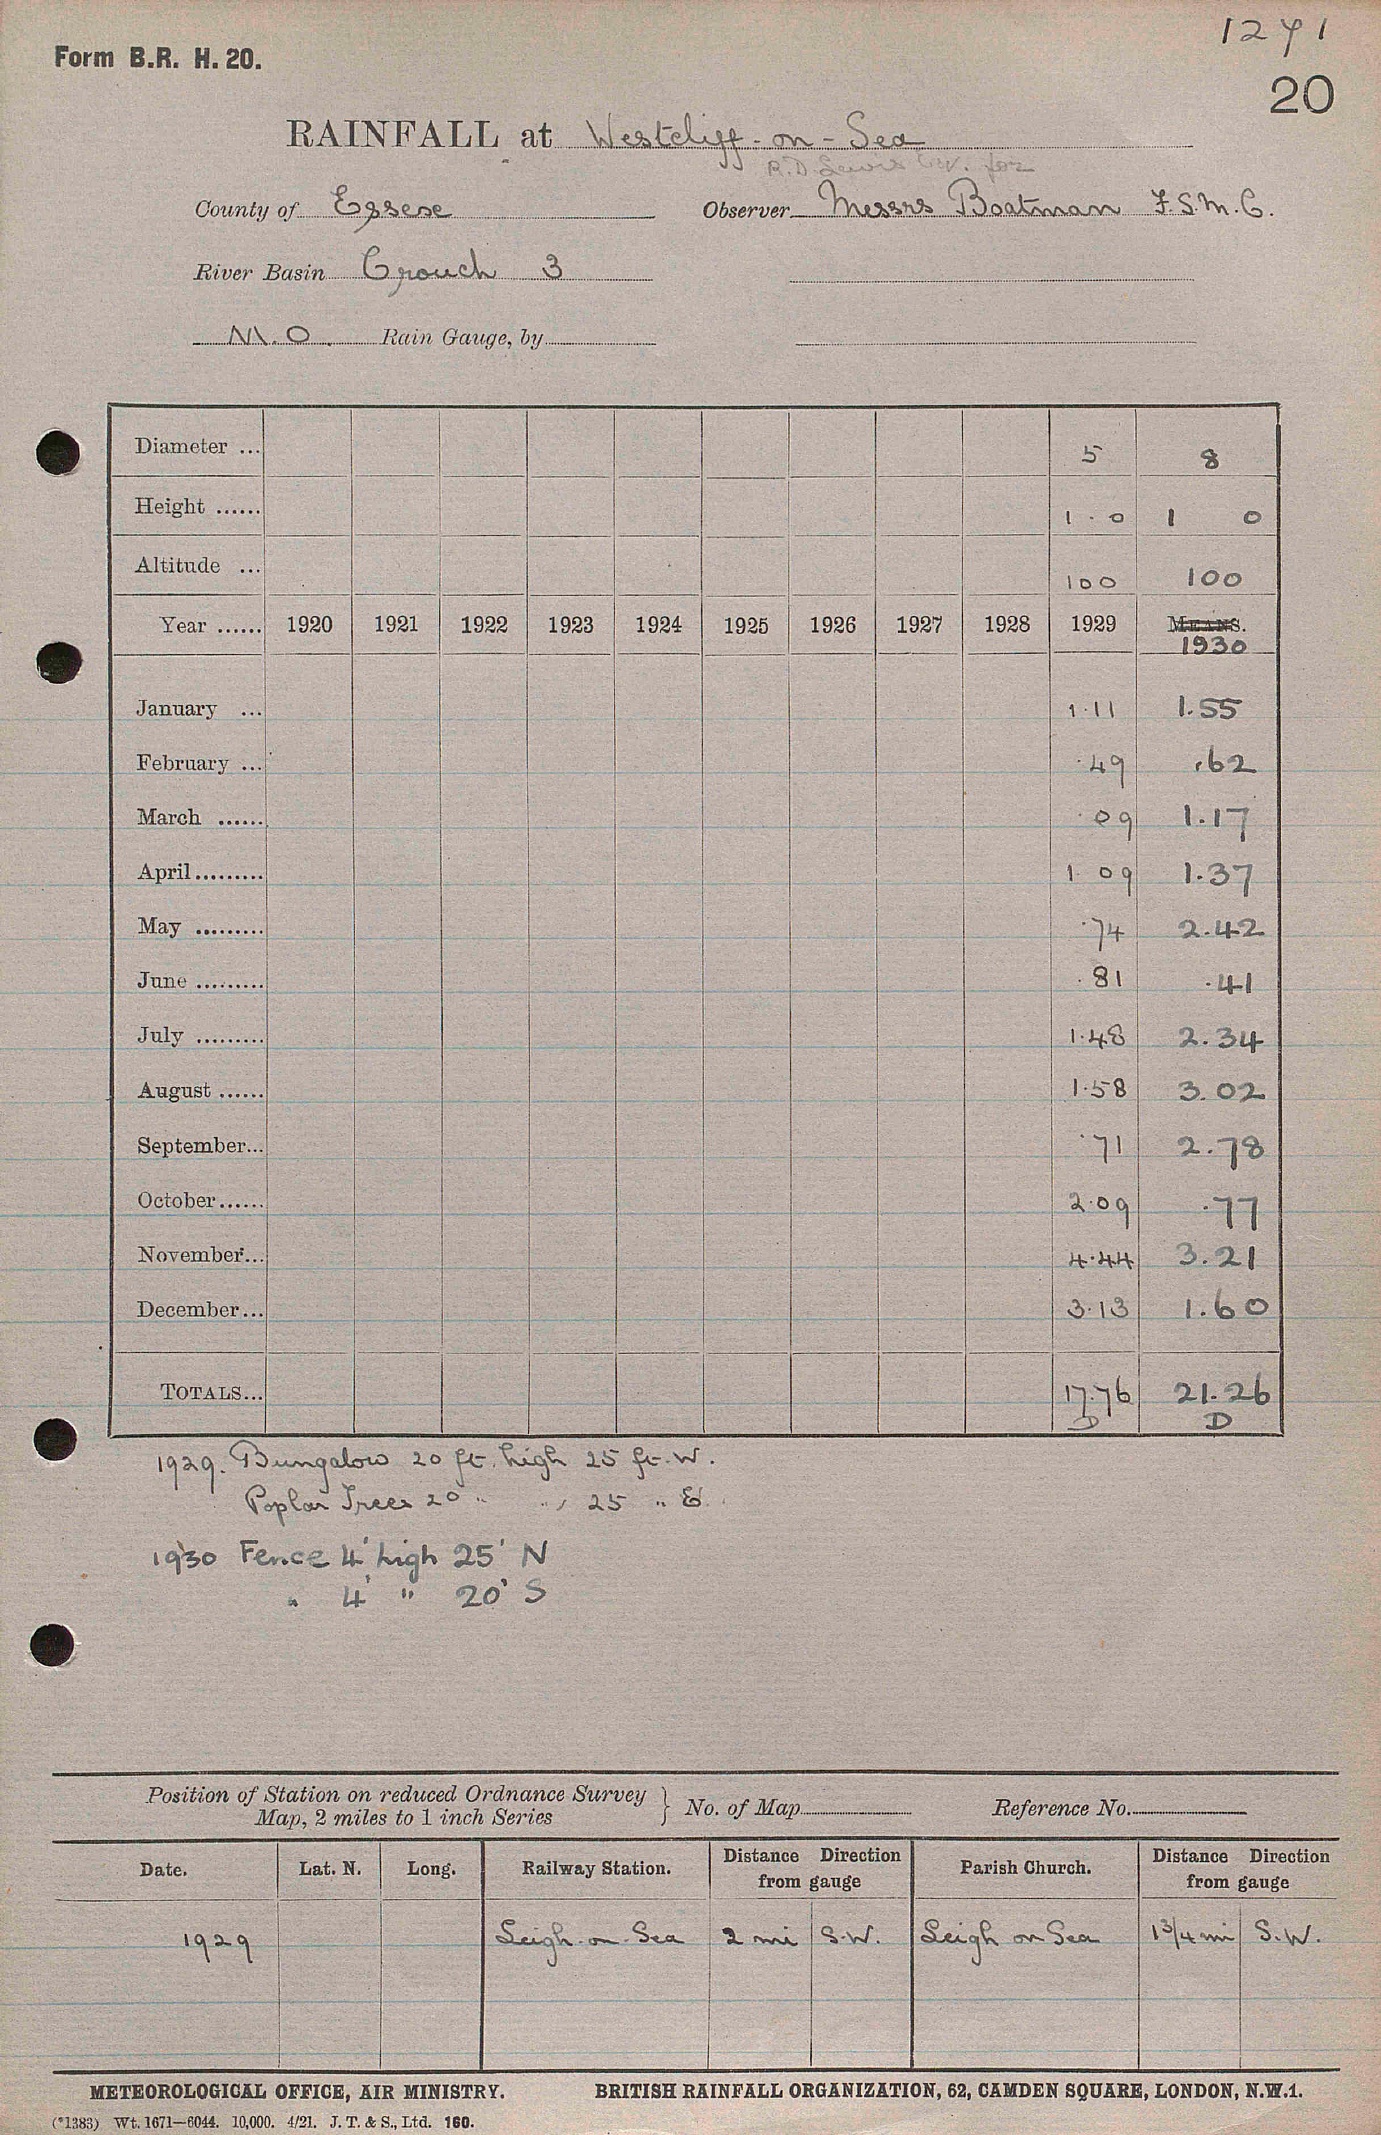 1271
Form B.R. H. 20.
20
RAINFALL at Westcliff-on-Sea
R.D. Lewis Esq. for
County of Essex Observer Messrs Boatman F.S.M.C.
River Basin Crouch 3
M.O. Rain Gauge, by
Diameter ... 5 8
Height ...... 1 . 0 1 0
Altitude ... 100 100
Year ...... 1920 1921 1922 1923 1924 1925 1926 1927 1928 1929 MEANS.
1930
January ... 1.11 1.55
February ... .49 .62
March ...... .09 1.17
April......... 1.09 1.37
May ......... .74 2.42
June ......... .81 .41
July ......... 1.48 2.34
August ...... 1.58 3.02
September... .71 2.78
October...... 2.09 .77
November... 4.44 3.21
December... 3.13 1.60
TOTALS... 17.76 21.26
D D
1929. Bungalow 20 ft. high 25 ft. W.
Poplar Trees 20 " " 25 " E.
1930 Fence 4' high 25' N
" 4' " 20' S
Position of Station on reduced Ordnance Survey
Map, 2 miles to 1 inch Series } No. of Map Reference No.
Date. Lat. N. Long. Railway Station. Distance Direction from gauge Parish Church. Distance Direction from gauge
1929 Leigh-on-Sea 2 mi S.W. Leigh on Sea 1 3/4 mi S.W.
METEOROLOGICAL OFFICE, AIR MINISTRY. BRITISH RAINFALL ORGANIZATION, 62, CAMDEN SQUARE, LONDON, N.W.1.
(*1383) Wt. 1671—6044. 10,000. 4/21. J. T. & S., Ltd. 160.